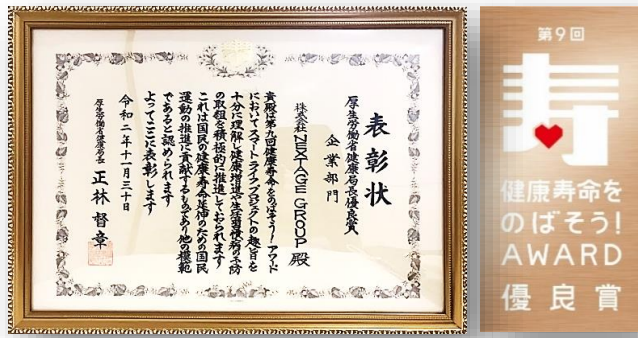 表彰状
厚生労働省健康局長優良賞
企業部門
株式会社 NEXTAGE GROUP 殿
貴殿は第九回健康寿命をのばそう！アワード
においてスマートライフプロジェクトの趣旨を
十分に理解し健康増進や生活習慣病の予防
の取組を積極的に推進しておられます
これは国民の健康寿命延伸のための国民
運動の推進に貢献するものであり他の模範
であると認められます
よってここに表彰します
令和二年十一月三十日
厚生労働省健康局長 正林督章
第9回
寿
健康寿命を
のばそう!
AWARD
優良賞